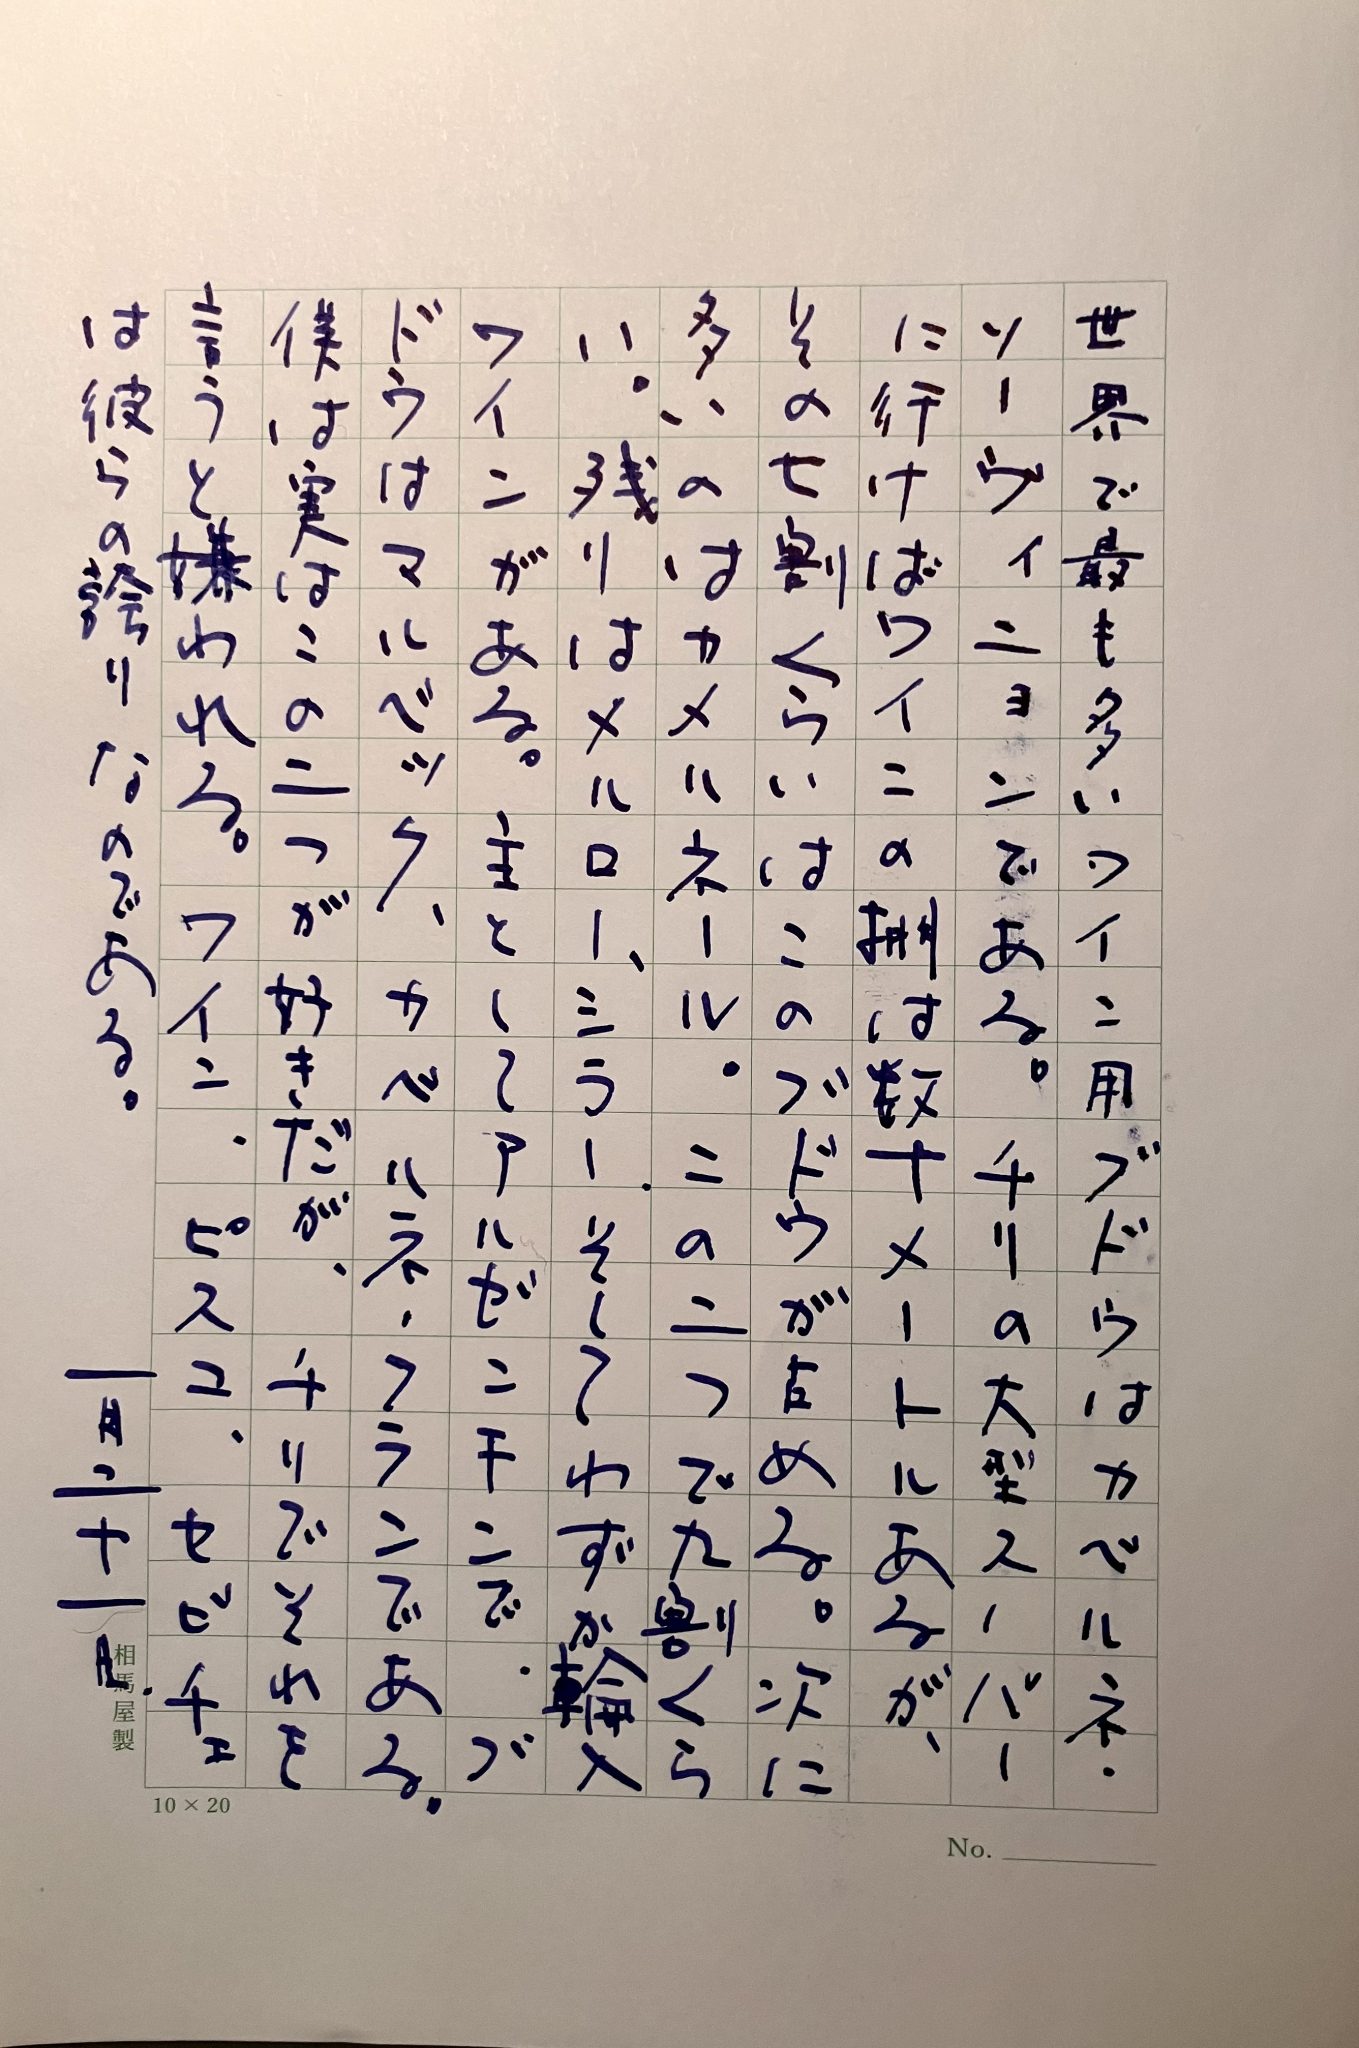 世界で最も多いワイン用ブドウはカベルネ・
ソーヴィニヨンである。チリの大型スーパー
に行けばワインの棚は数十メートルあるが、
その七割くらいはこのブドウが占める。次に
多いのはカメルネール。この二つで九割くら
い。残りはメルロー、シラー、そしてわずか輸入
ワインがある。主としてアルゼンチンで、ブ
ドウはマルベック、カベルネ・フランである。
僕は実はこの二つが好きだが、チリでそれを
言うと嫌われる。ワイン、ピスコ、セビチェ
は彼らの誇りなのである。
一月二十一日
相馬屋製
10×20
No.